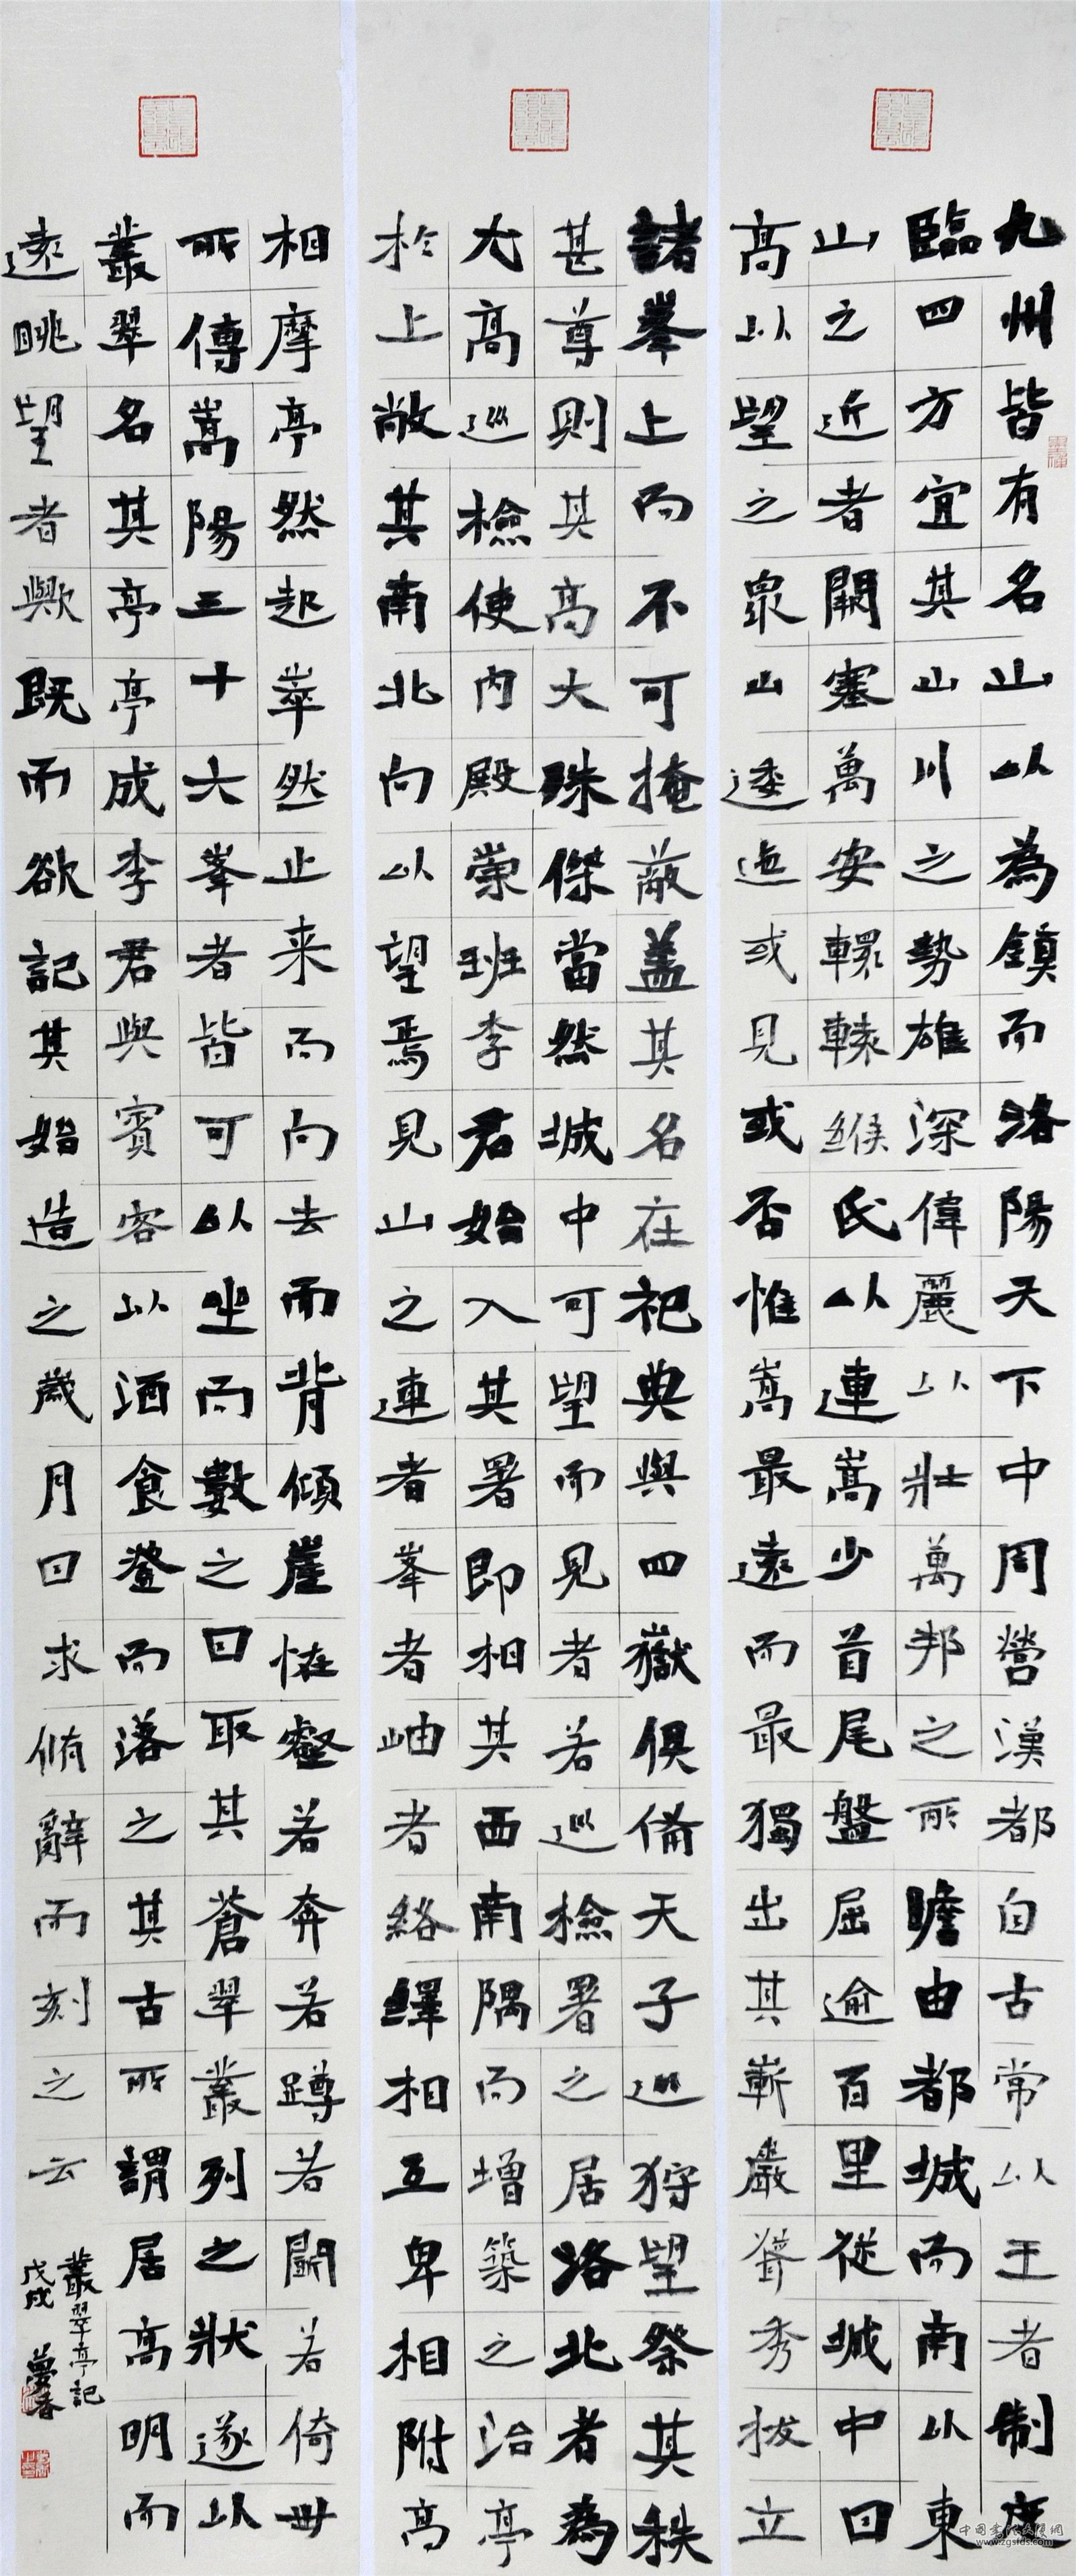 九州皆有名山以為鎮而洛陽天下中周營漢都自古常以王者制度
臨四方宜其山川之勢雄深偉麗以壯萬邦之所瞻由都城而南以東
山之近者闕塞萬安轘轅緱氏以連嵩少首尾盤屈逾百里從城中因
高以望之衆山逶迤或見或否惟嵩最遠而最獨出其嶄巖聳秀拔立
諸峯上而不可掩蔽蓋其名在祀典與四嶽俱備天子巡狩望祭其秩
甚尊則其高大殊傑當然城中可望而見者若巡檢署之居洛北者為
尤高巡檢使內殿崇班李君始入其署即相其西南隅而增築之治亭
於上敞其南北向以望焉見山之連者峯者岫者絡繹相互卑相附高
相摩亭然起崒然止来而向去而背傾崖怪壑若奔若蹲若鬭若倚世
所傳嵩陽三十六峯者皆可以坐而數之因取其蒼翠叢列之狀遂以
叢翠名其亭亭成李君與賓客以酒食登而落之其古所謂居高明而
遠眺望者歟既而欲記其始造之歲月因求脩辭而刻之云
叢翠亭記
戊戌 夢香
www.zgsfds.com